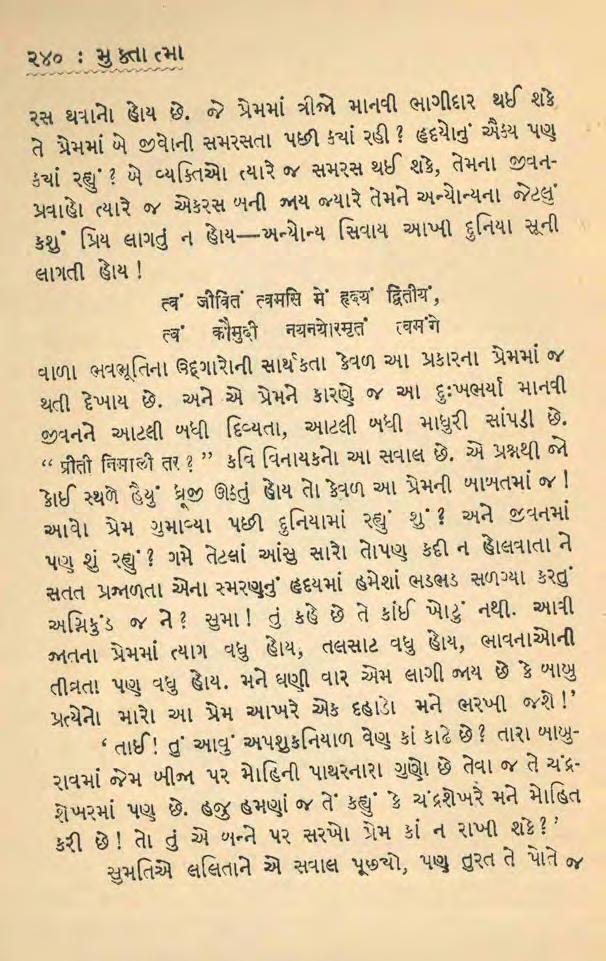 ૨૪૦ : મુક્તાત્મા
રસ થવાનો હોય છે. જે પ્રેમમાં ત્રીજો માનવી ભાગીદાર થઈ શકે
તે પ્રેમમાં બે જીવોની સમરસતા પછી કયાં રહી ? હૃદયોનું ઐક્ય પણ
કયાં રહ્યું ? બે વ્યક્તિઓ ત્યારે જ સમરસ થઈ શકે, તેમના જીવન-
પ્રવાહો ત્યારે જ એકરસ બની જાય જયારે તેમને અન્યોન્યના જેટલું
કશું પ્રિય લાગતું ન હોય—અન્યોન્ય સિવાય આખી દુનિયા સૂની
લાગતી હોય !
त्वं जीवितं त्वमसि मे हृदयं द्वितीयं,
त्वं कौमुदी नयनयोरमृतं त्वमंगे
વાળા ભવભૂતિના ઉદ્દગારોની સાર્થકતા કેવળ આ પ્રકારના પ્રેમમાં જ
થતી દેખાય છે. અને એ પ્રેમને કારણે જ આ દુઃખભર્યા માનવી
જીવનને આટલી બધી દિવ્યતા, આટલી બધી માધુરી સાંપડી છે.
“ प्रीती निमाली तर ? ” કવિ વિનાયકનો આ સવાલ છે. એ પ્રશ્નથી જો
કોઈ સ્થળે હૈયું ધ્રૂજી ઊઠતું હોય તો કેવળ આ પ્રેમની બાબતમાં જ !
આવો પ્રેમ ગુમાવ્યા પછી દુનિયામાં રહ્યું શું ? અને જીવનમાં
પણ શું રહ્યું ? ગમે તેટલાં આંસુ સારો તોપણ કદી ન હોલવાતા ને
સતત પ્રજળતા એના સ્મરણુનું હૃદયમાં હમેશાં ભડભડ સળગ્યા કરતું
અગ્નિકુંડ જ ને ? સુમા ! તું કહે છે તે કાંઈ ખોટું નથી. આવી
જાતના પ્રેમમાં ત્યાગ વધુ હોય, તલસાટ વધુ હોય, ભાવનાઓની
તીવ્રતા પણ વધુ હોય. મને ઘણી વાર એમ લાગી જાય છે કે બાબુ
પ્રત્યેનો મારો આ પ્રેમ આખરે એક દહાડો મને ભરખી જશે !’
‘ તાઈ ! તું આવું અપશુકનિયાળ વેણ કાં કાઢે છે ? તારા બાબુ-
રાવમાં જેમ બીજા પર મોહિની પાથરનારા ગુણો છે તેવા જ તે ચંદ્ર-
શેખરમાં પણ છે. હજુ હમણાં જ તેં કહ્યું કે ચંદ્રશેખરે મને મોહિત
કરી છે ! તો તું એ બન્ને પર સરખો પ્રેમ કાં ન રાખી શકે ? ’
સુમતિએ લલિતાને એ સવાલ પૂછ્યો, પણ તુરત તે પોતે જ